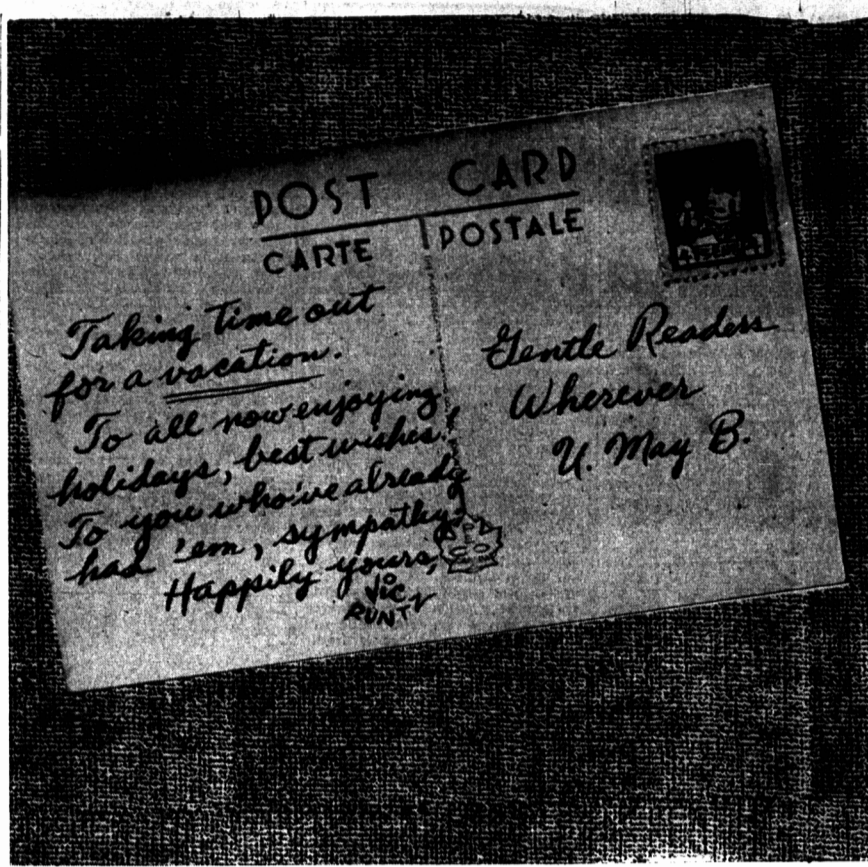 POST CARD
CARTE POSTALE
Taking time out
for a vacation.
To all now enjoying
holidays, best wishes!
To you who've already
had 'em, sympathy.
Happily yours,
Vic
RUNT
Gentle Readers
Wherever
U. May B.